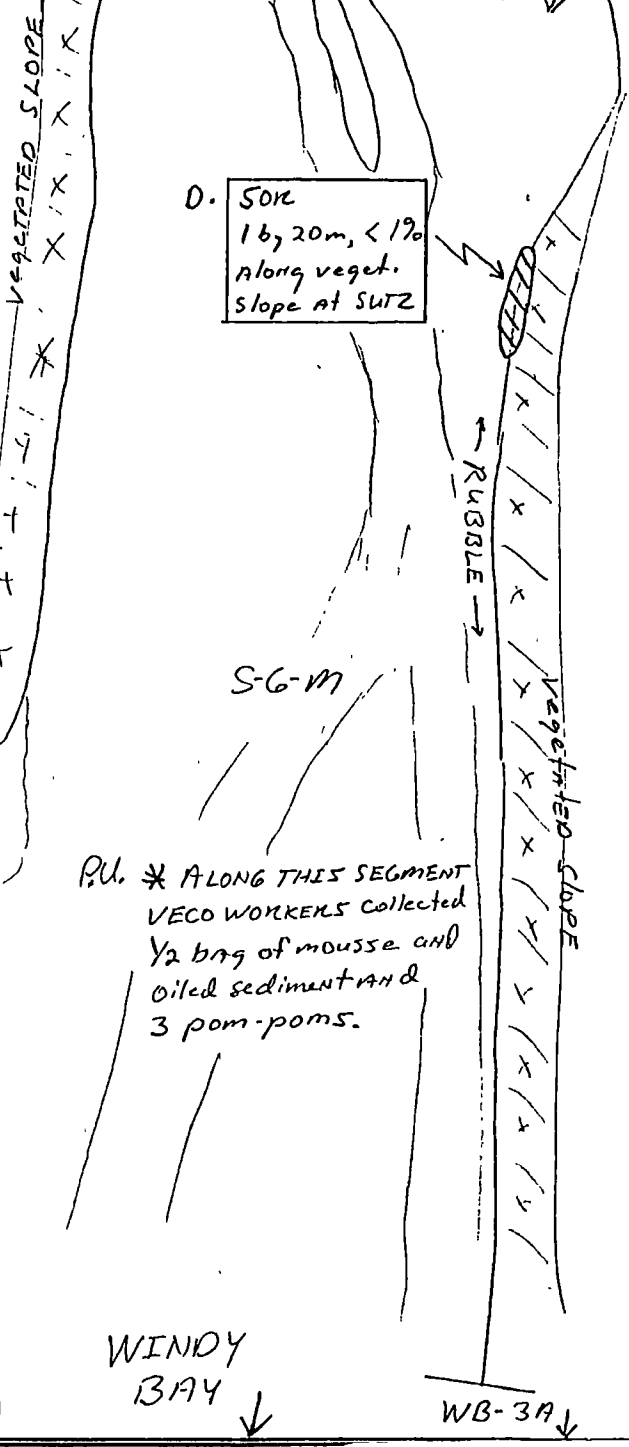 VEGETATED SLOPE
D. SOR
1 by 20m, < 1%
Along veget.
Slope At SUTZ
← RUBBLE →
S-G-M
Vegetated Slope
P.U. * ALONG THIS SEGMENT
VECO WORKERS collected
1/2 bag of mousse and
oiled sediment and
3 pom-poms.
WINDY
BAY
WB-3A